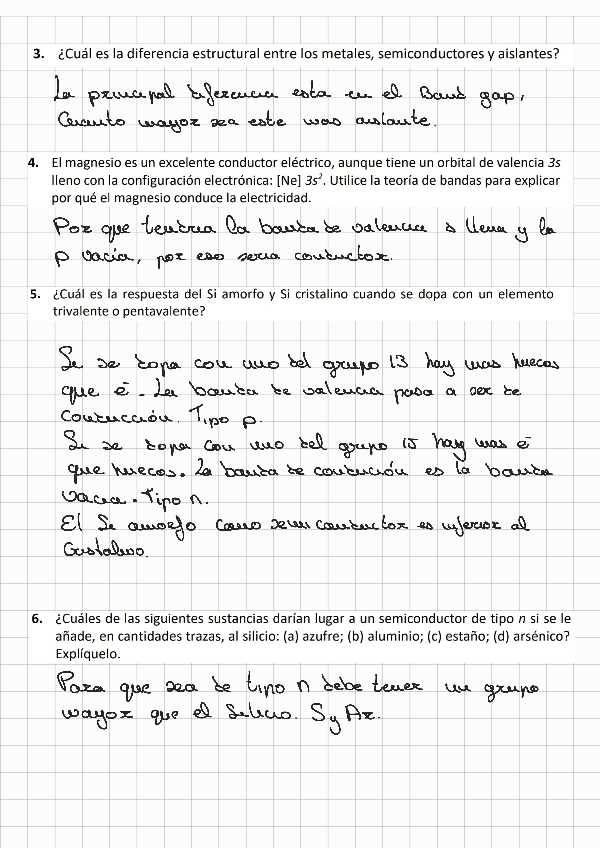 3. ¿Cuál es la diferencia estructural entre los metales, semiconductores y aislantes?
La principal diferencia esta en el Band gap,
Cuanto mayor sea este mas aislante.
4. El magnesio es un excelente conductor eléctrico, aunque tiene un orbital de valencia 3s
lleno con la configuración electrónica: [Ne] 3s². Utilice la teoría de bandas para explicar
por qué el magnesio conduce la electricidad.
Por que tendria la banda de valencia s llena y la
p vacía, por eso seria conductor.
5. ¿Cuál es la respuesta del Si amorfo y Si cristalino cuando se dopa con un elemento
trivalente o pentavalente?
Si se dopa con uno del grupo 13 hay mas huecos
que ē. La banda de valencia pasa a ser de
conducción. Tipo p.
Si se dopa con uno del grupo 15 hay mas ē
que huecos. La banda de condución es la banda
vacia. Tipo n.
El Si amorfo como semiconductor es inferior al
Cristalino.
6. ¿Cuáles de las siguientes sustancias darían lugar a un semiconductor de tipo n si se le
añade, en cantidades trazas, al silicio: (a) azufre; (b) aluminio; (c) estaño; (d) arsénico?
Explíquelo.
Para que sea de tipo n debe tener un grupo
mayor que el Silicio. S y Ar.